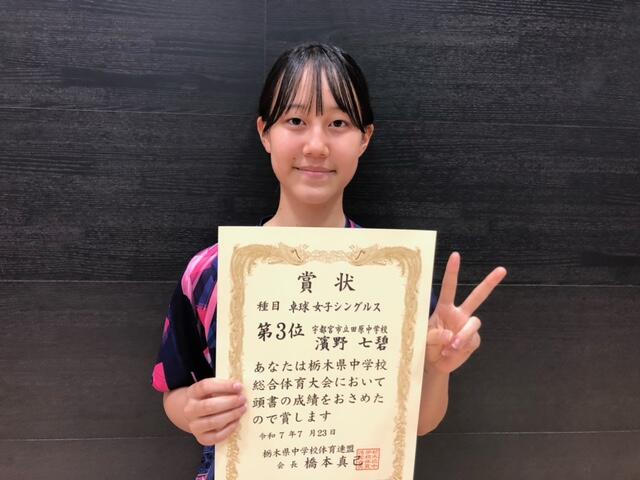 賞状
種目 卓球 女子シングルス
第3位 宇都宮市立田原中学校
濱野 七碧
あなたは栃木県中学校
総合体育大会において
頭書の成績をおさめた
ので賞します
令和7年7月23日
栃木県中学校体育連盟
会長 橋本真己